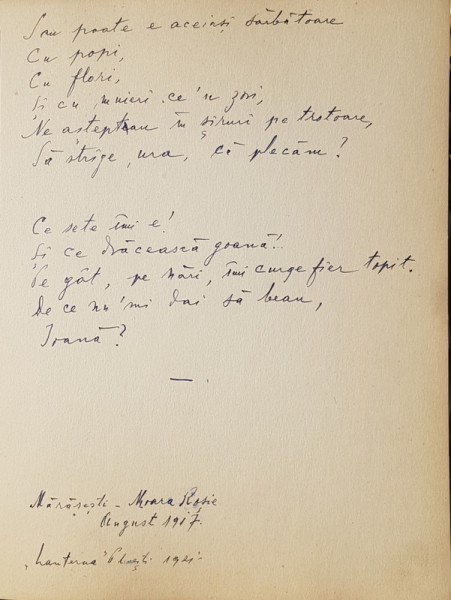 Sau poate e aceiași sărbătoare
Cu popi,
Cu flori,
Și cu muieri ce'n zori,
Ne așteptau în șiruri pe trotoare,
Să strige, ura, că plecăm?
Ce sete îmi e!
Și ce drăcească goană!..
Pe gât, pe nări, îmi curge fier topit.
De ce nu'mi dai să beau,
Ioană?
—
Mărășești - Moara Roșie
August 1917.
„Lanterna" Ploești 1921-